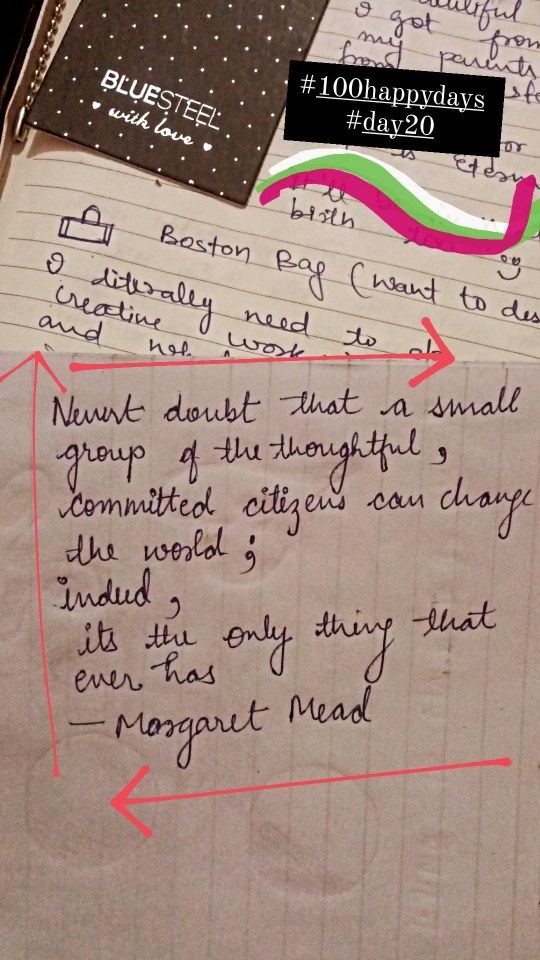 I got from
my parents
from
BLUESTEEL
with love
#100happydays
#day20
or
is Etern
birth
Boston Bag (want to des
I literally need to
creative work
and not
Never doubt that a small
group of the thoughtful,
committed citizens can change
the world;
indeed,
its the only thing that
ever has
— Margaret Mead